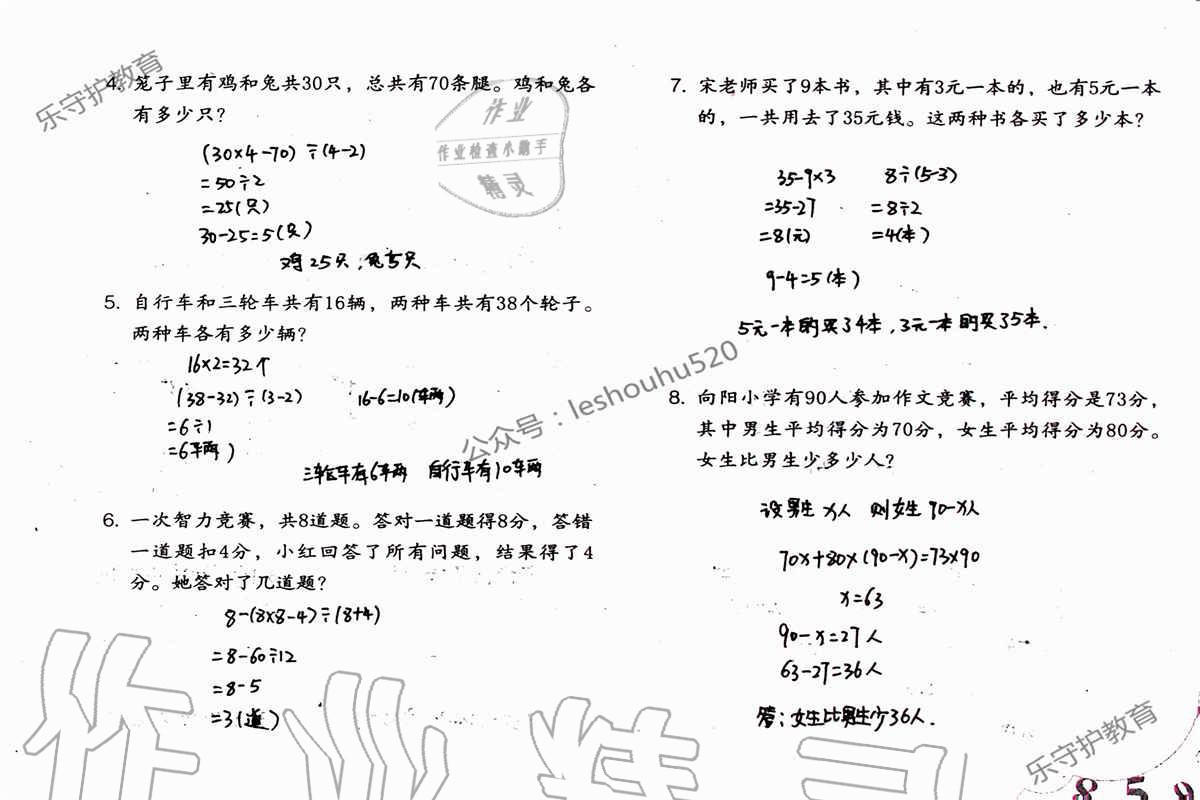 乐守护教育
4. 笼子里有鸡和兔共30只，总共有70条腿。鸡和兔各
有多少只？
(30×4-70)÷(4-2)
=50÷2
=25(只)
30-25=5(只)
鸡25只,兔5只
5. 自行车和三轮车共有16辆，两种车共有38个轮子。
两种车各有多少辆？
16×2=32个
(38-32)÷(3-2) 16-6=10(辆)
=6÷1
=6辆)
三轮车有6辆 自行车有10辆
6. 一次智力竞赛，共8道题。答对一道题得8分，答错
一道题扣4分，小红回答了所有问题，结果得了4
分。她答对了几道题？
8-(8×8-4)÷(8+4)
=8-60÷12
=8-5
=3(道)
作业
作业检查小助手
精灵
公众号：leshouhu520
7. 宋老师买了9本书，其中有3元一本的，也有5元一本
的，一共用去了35元钱。这两种书各买了多少本？
35-9×3 8÷(5-3)
=35-27 =8÷2
=8(元) =4(本)
9-4=5(本)
5元一本的买了4本,3元一本的买了5本.
8. 向阳小学有90人参加作文竞赛，平均得分是73分，
其中男生平均得分为70分，女生平均得分为80分。
女生比男生少多少人？
设男生x人 则女生90-x人
70x+80×(90-x)=73×90
x=63
90-x=27人
63-27=36人
答:女生比男生少36人.
作业精灵
乐守护教育
859